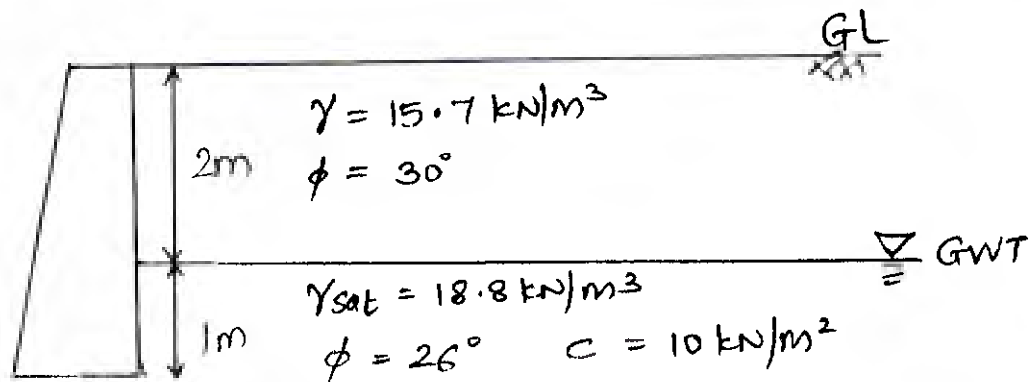 GL
γ = 15.7 kN/m³
2m
φ = 30°
GWT
γsat = 18.8 kN/m³
1m
φ = 26° c = 10 kN/m²